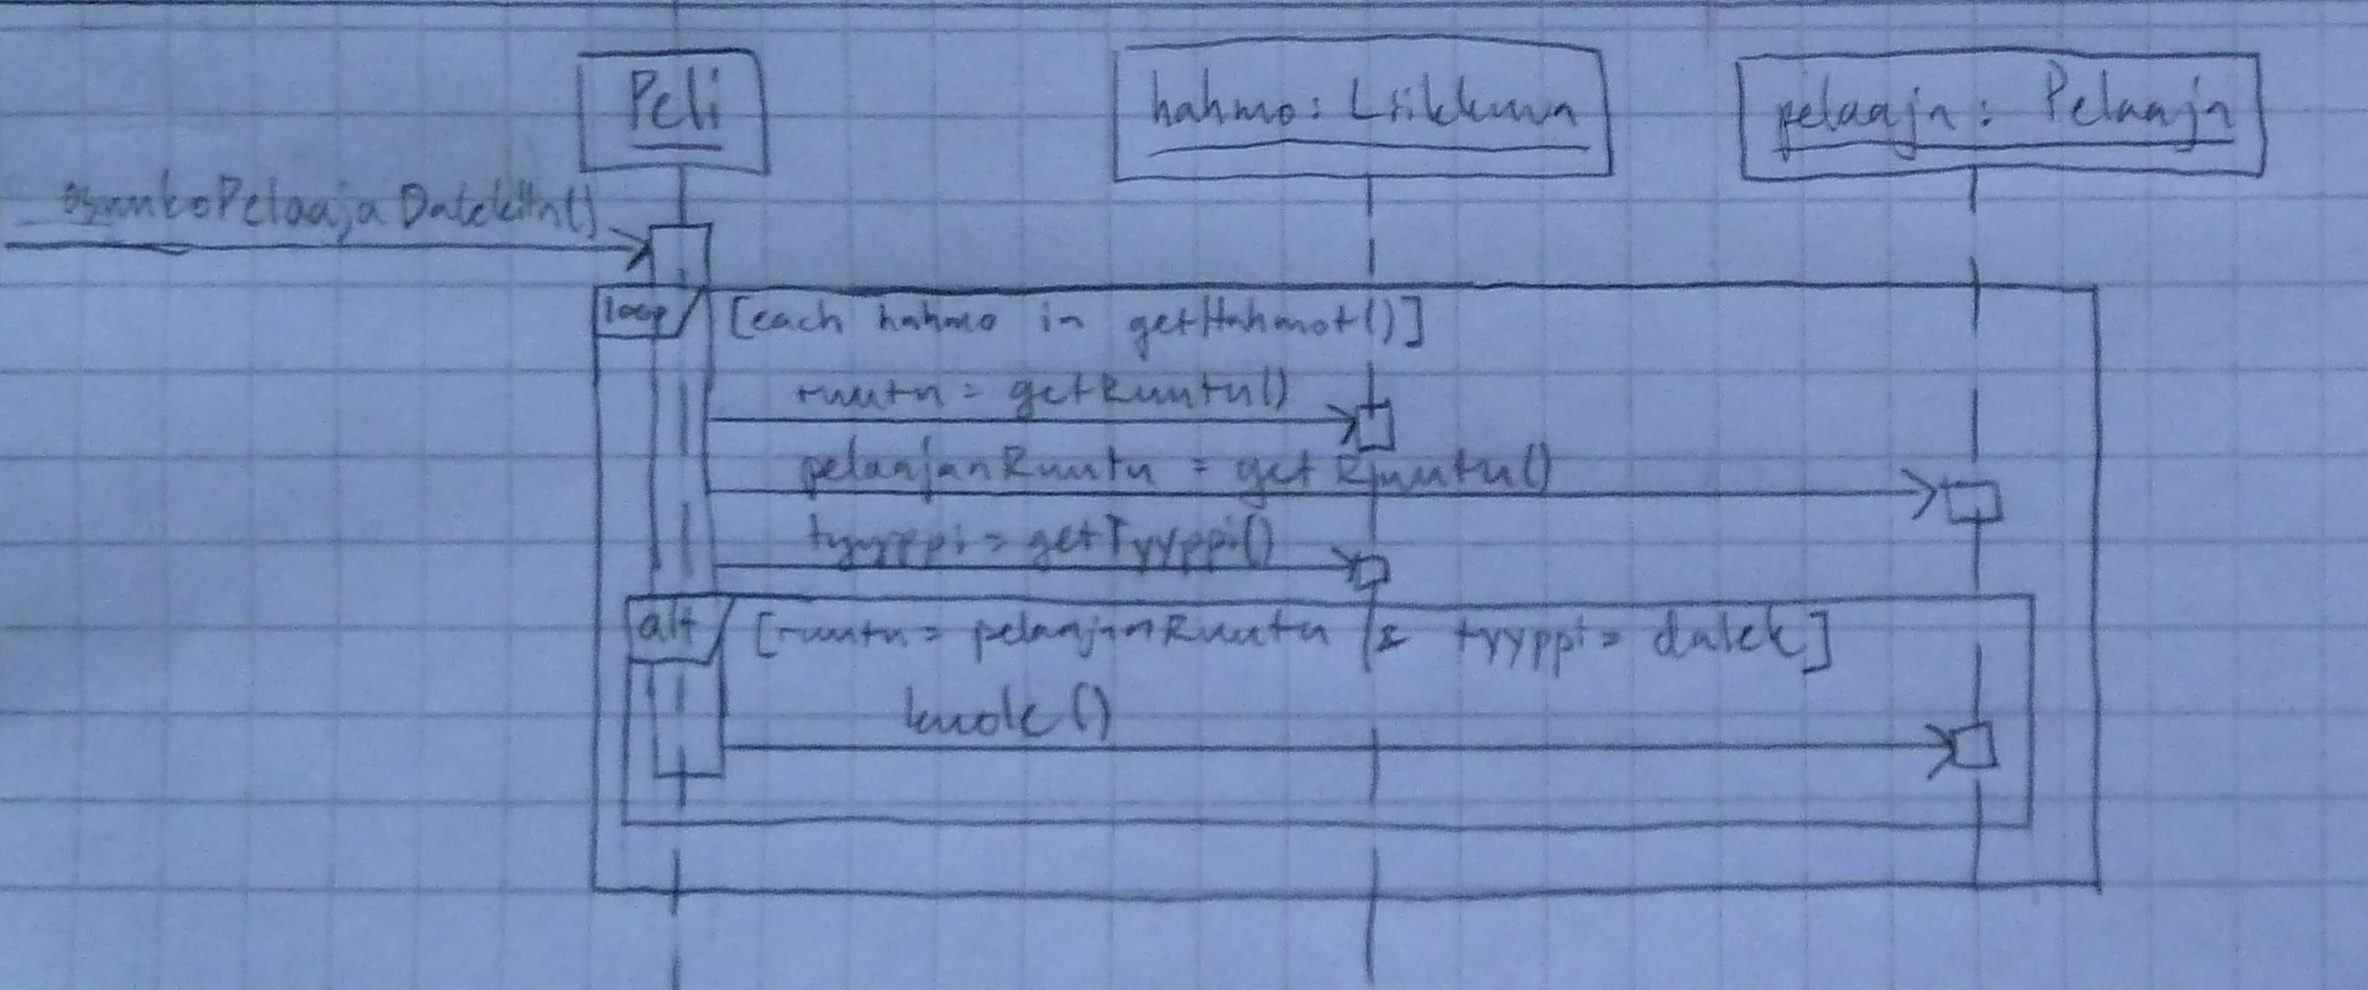 Peli
hahmo: Liikkuva
pelaaja: Pelaaja
osuukoPelaajaDalekiin()
loop [each hahmo in getHahmot()]
ruutu = getRuutu()
pelaajanRuutu = getRuutu()
tyyppi = getTyyppi()
alt [ruutu = pelaajanRuutu & tyyppi = dalek]
kuole()